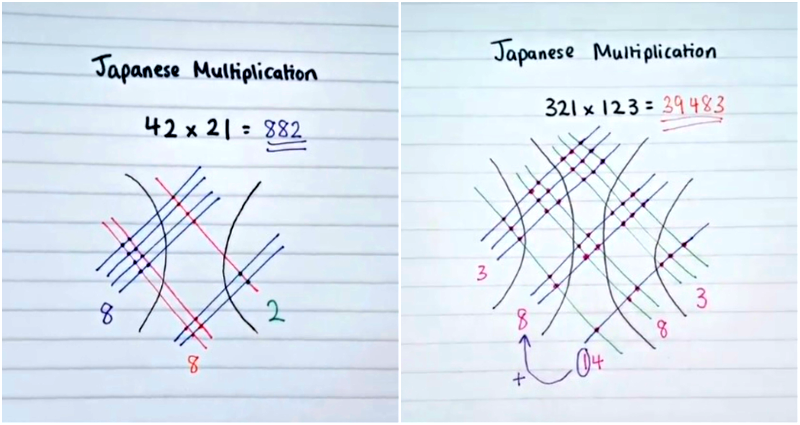 Japanese Multiplication
42 x 21 = 882
8
2
8
Japanese Multiplication
321 x 123 = 39483
3
3
8
8
+
14